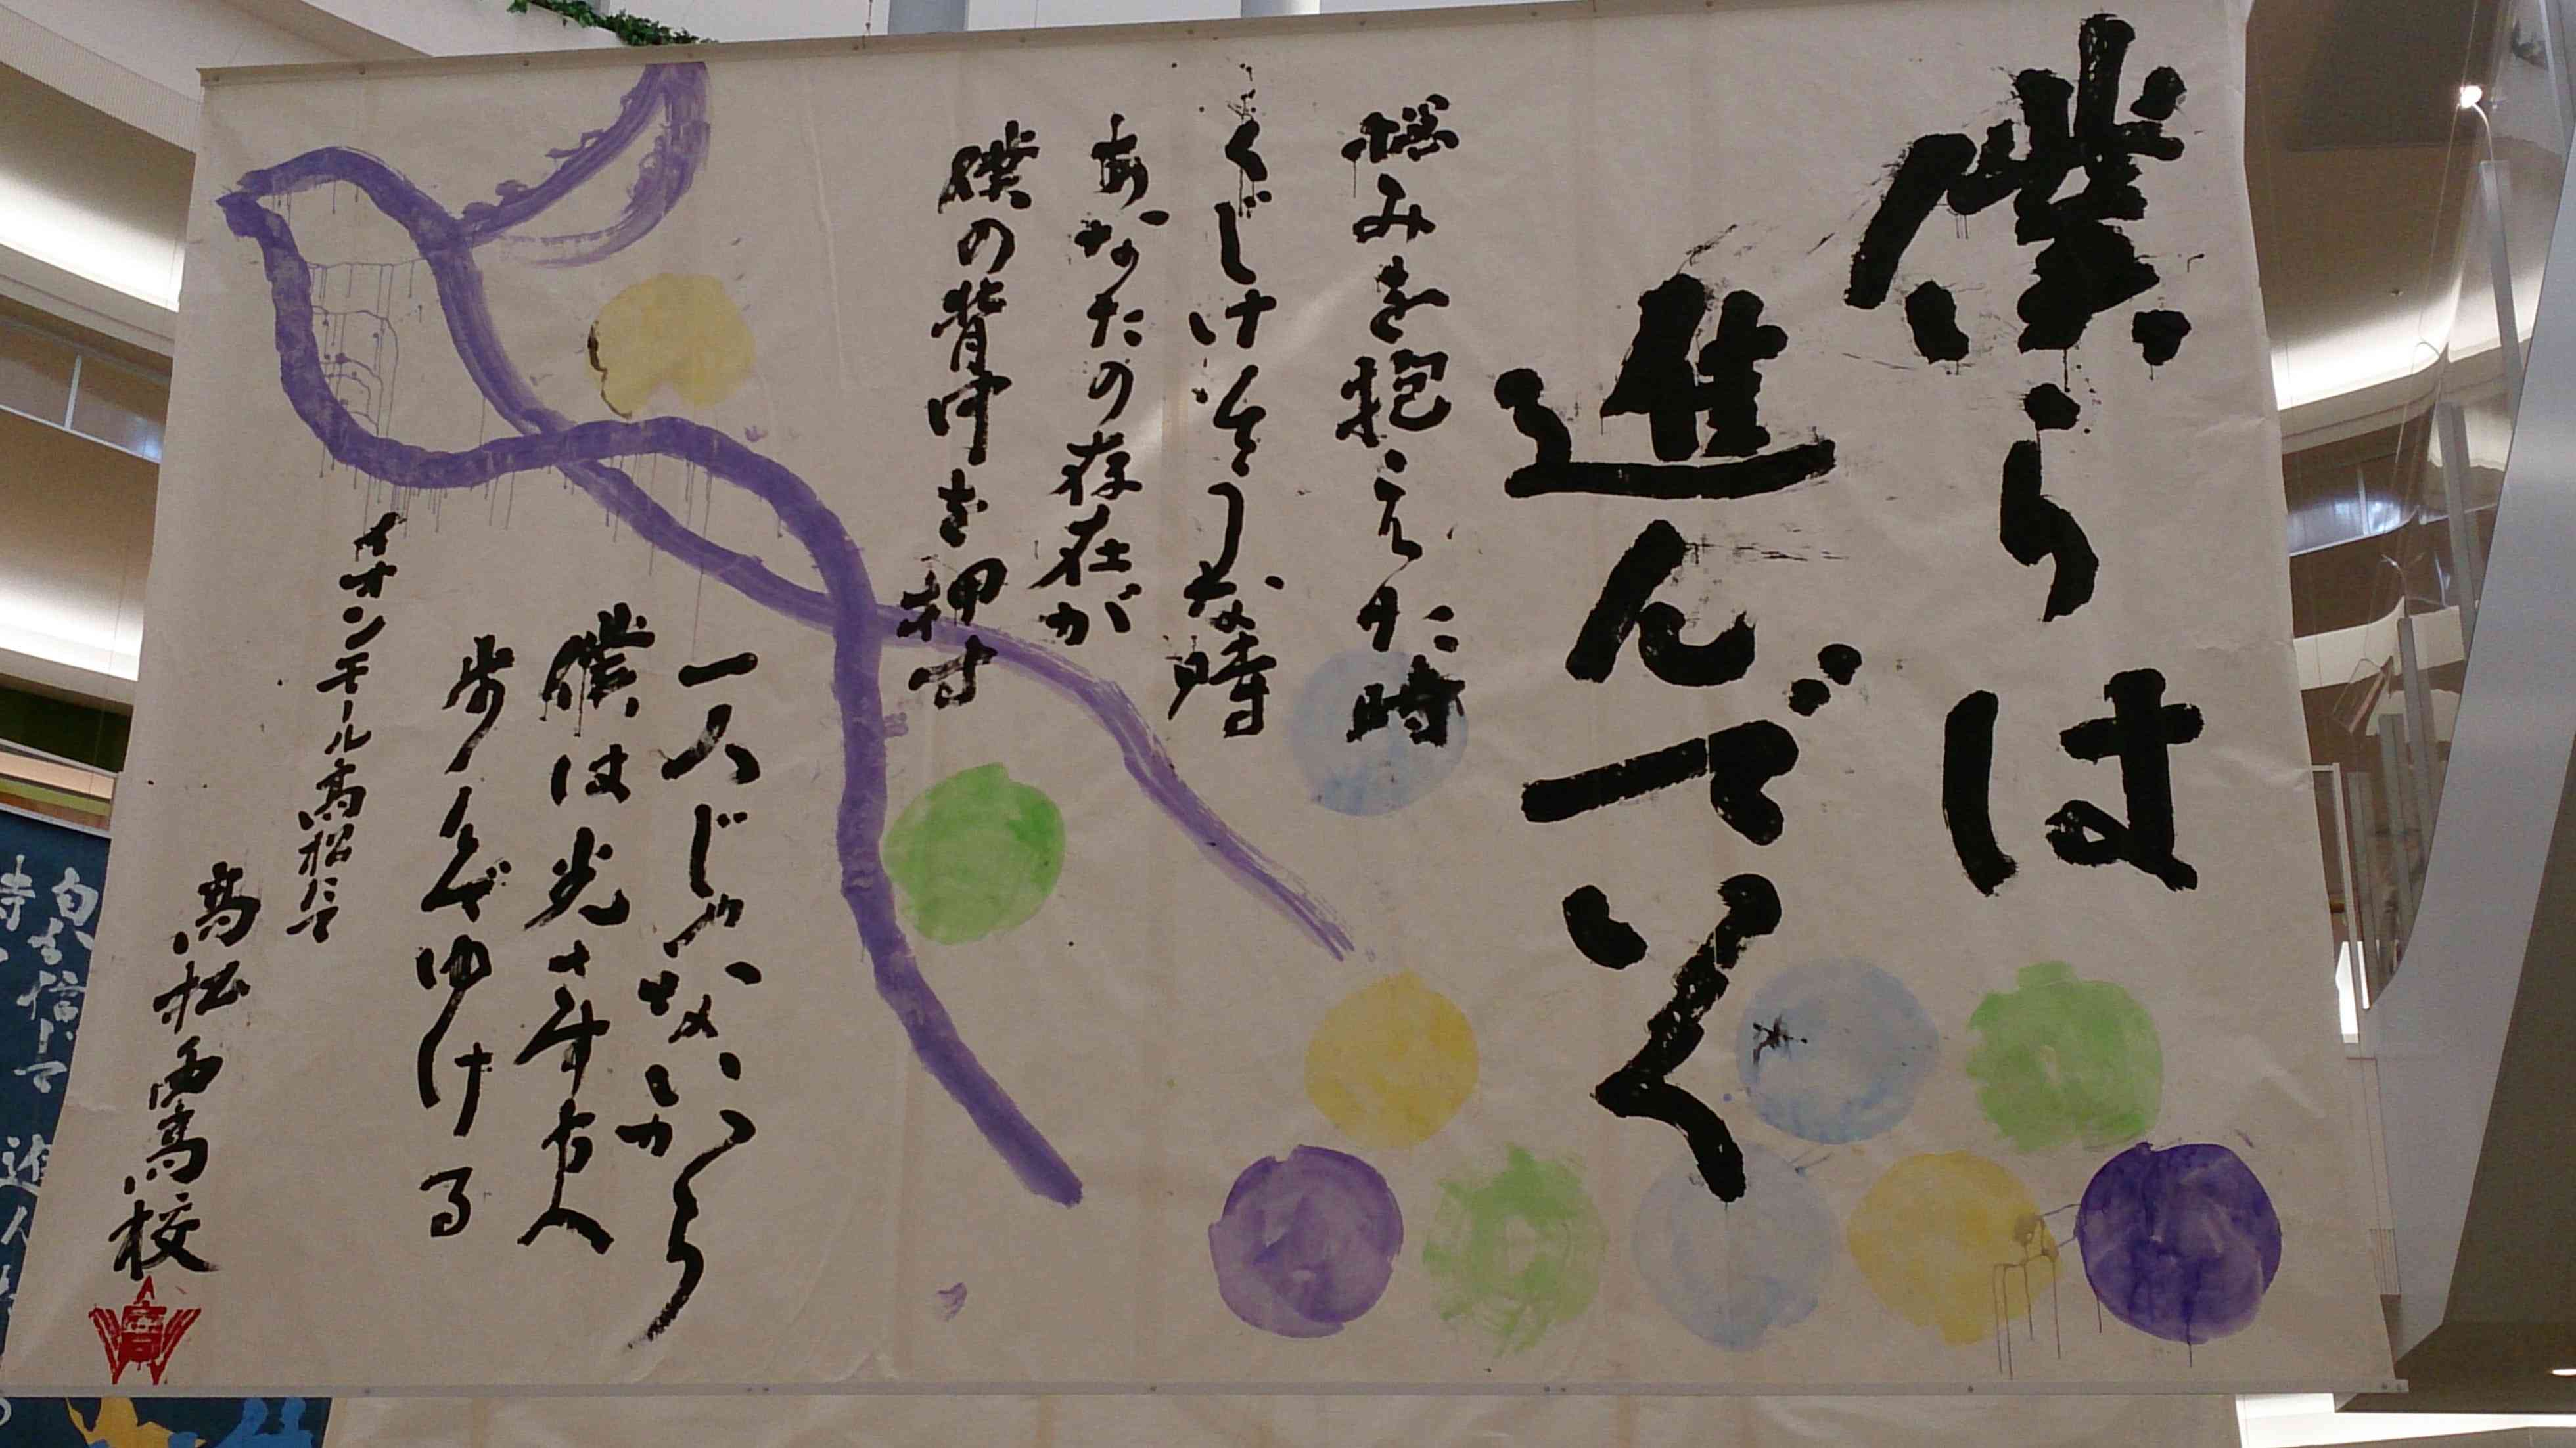 僕らは
進んでいく
悩みを抱えた時
くじけそうな時
あなたの存在が
僕の背中を押す
一人じゃないから
僕は光さす方へ
歩んでゆける
イオンモール高松にて
高松西高校
自分を信じて